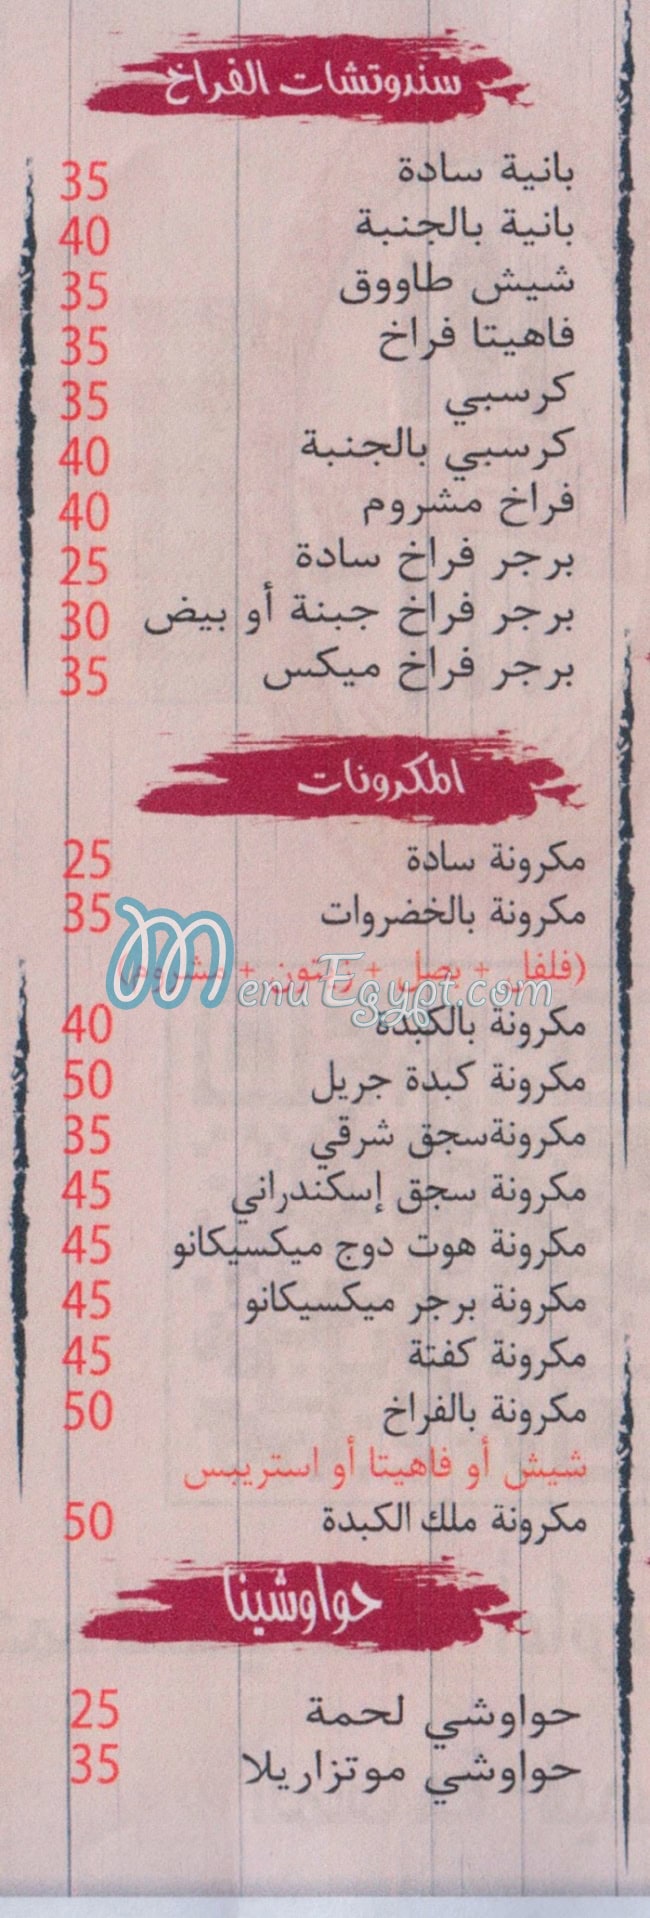 سندوتشات الفراخ
بانية سادة 35
بانية بالجنبة 40
شيش طاووق 35
فاهيتا فراخ 35
كرسبي 35
كرسبي بالجنبة 40
فراخ مشروم 40
برجر فراخ سادة 25
برجر فراخ جبنة أو بيض 30
برجر فراخ ميكس 35
المكرونات
مكرونة سادة 25
مكرونة بالخضروات 35
(فلفل + بصل + زيتون + مشروم)
MenuEgypt.com
مكرونة بالكبدة 40
مكرونة كبدة جريل 50
مكرونةسجق شرقي 35
مكرونة سجق إسكندراني 45
مكرونة هوت دوج ميكسيكانو 45
مكرونة برجر ميكسيكانو 45
مكرونة كفتة 45
مكرونة بالفراخ 50
شيش أو فاهيتا أو استريبس
مكرونة ملك الكبدة 50
حواوشينا
حواوشي لحمة 25
حواوشي موتزاريلا 35